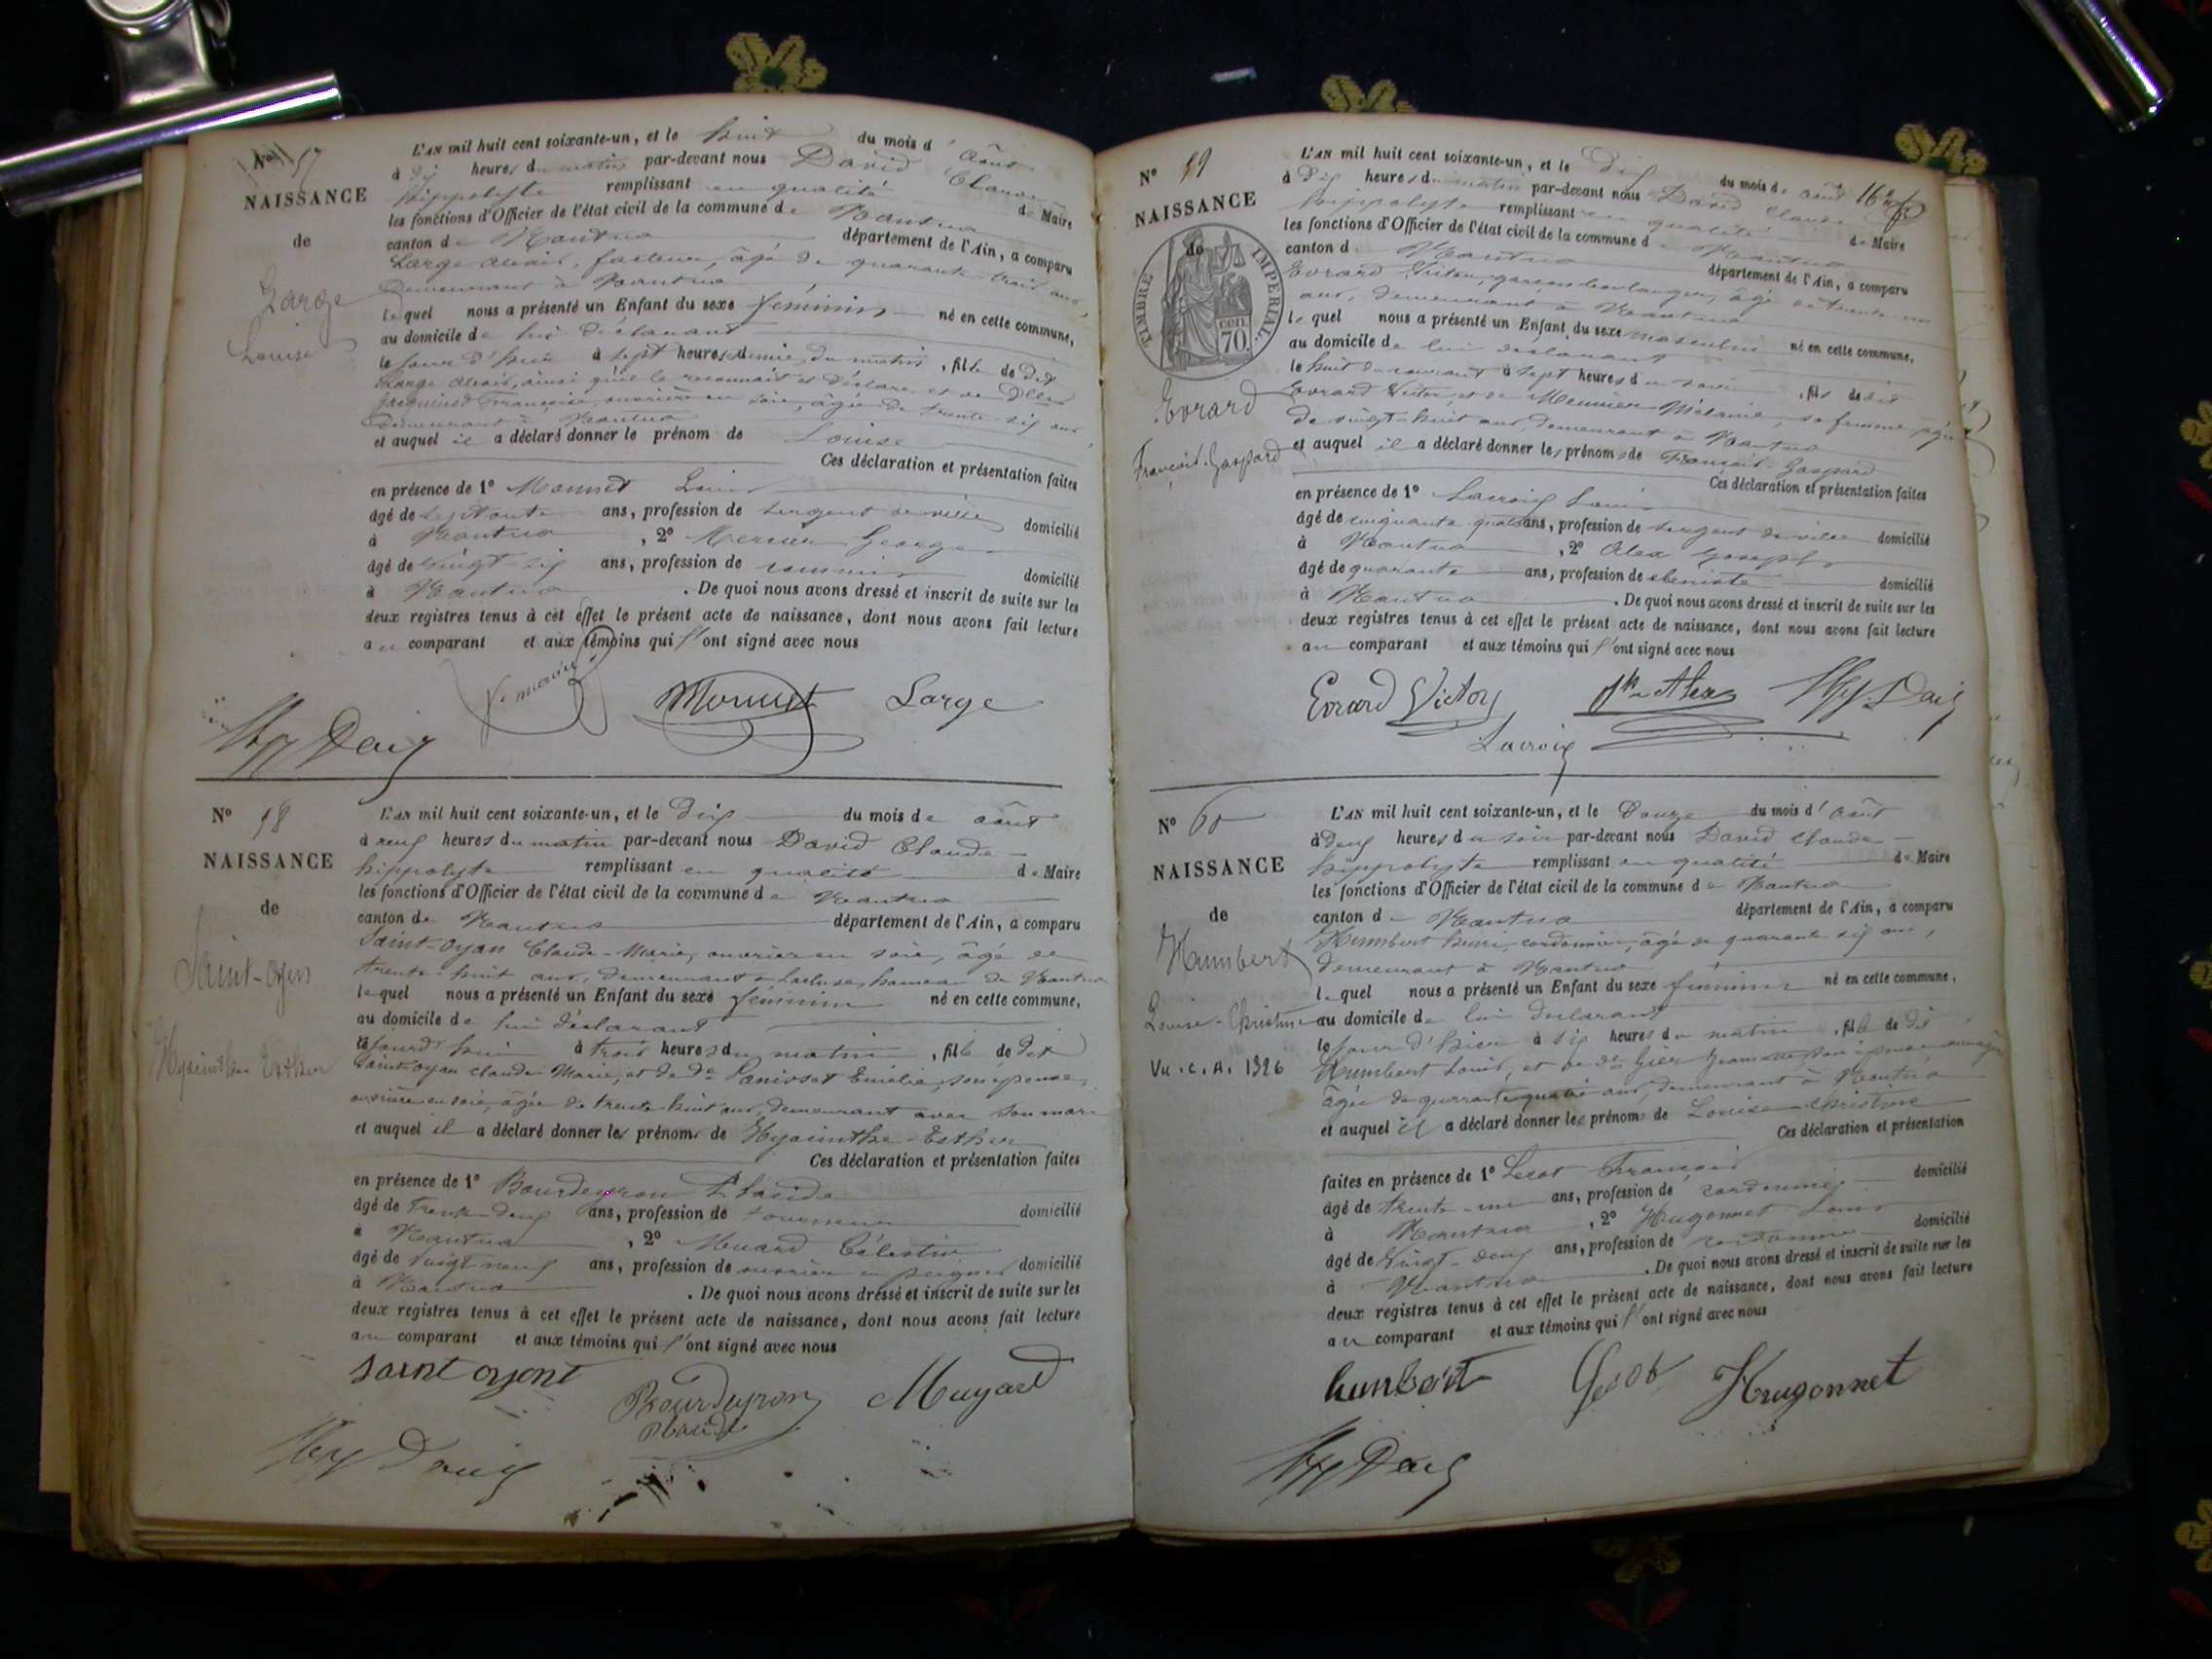 Nº 57
NAISSANCE
de
Large
Louise
L'AN mil huit cent soixante-un, et le huit du mois d'août
à dix heures du matin par-devant nous David Claude
hippolyte remplissant en qualité de Maire
les fonctions d'Officier de l'état civil de la commune de Nantua
canton de Nantua département de l'Ain, a comparu
Large Alexis, facteur, âgé de quarante trois ans,
demeurant à Nantua
lequel nous a présenté un Enfant du sexe féminin né en cette commune,
au domicile de lui déclarant
le jour d'hier à sept heures & demie du matin, fille de dit
Large Alexis, ainsi qu'il le reconnait et déclare et de Dlle
Françoise, ouvrière en soie, âgée de trente six ans,
demeurant à Nantua
et auquel il a déclaré donner le prénom de Louise
Ces déclaration et présentation faites
en présence de 1º Monnet Louis
âgé de septante ans, profession de sergent de ville domicilié
à Nantua, 2º Mercier George
âgé de vingt-six ans, profession de commis domicilié
à Nantua. De quoi nous avons dressé et inscrit de suite sur les
deux registres tenus à cet effet le présent acte de naissance, dont nous avons fait lecture
au comparant et aux témoins qui l'ont signé avec nous
Monnet Large
Hte David
Nº 58
NAISSANCE
de
Saint-Oyen
Hyacinthe Esther
L'AN mil huit cent soixante-un, et le dix du mois de août
à neuf heures du matin par-devant nous David Claude
hippolyte remplissant en qualité de Maire
les fonctions d'Officier de l'état civil de la commune de Nantua
canton de Nantua département de l'Ain, a comparu
Saint-Oyan Claude-Marie, ouvrier en soie, âgé de
trente-huit ans, demeurant à hameau de Nantua
lequel nous a présenté un Enfant du sexe féminin né en cette commune,
au domicile de lui déclarant
le jourd'hui à trois heures du matin, fille de dit
Saint-Oyan Claude Marie, et de de Panisset Emélie, son épouse,
ouvrière en soie, âgée de trente-huit ans, demeurant avec son mari
et auquel il a déclaré donner les prénoms de Hyacinthe-Esther
Ces déclaration et présentation faites
en présence de 1º Bourdeyron Placide
âgé de trente-deux ans, profession de tourneur domicilié
à Nantua, 2º Muard Célestin
âgé de vingt neuf ans, profession de ouvrier en peignes domicilié
à Nantua. De quoi nous avons dressé et inscrit de suite sur les
deux registres tenus à cet effet le présent acte de naissance, dont nous avons fait lecture
au comparant et aux témoins qui l'ont signé avec nous
saint oyent Bourdeyron Muyard
Placide
Hte David
Nº 59
NAISSANCE
de
TIMBRE IMPERIAL
cen. 70.
Evrard
François-Gaspard
L'AN mil huit cent soixante-un, et le dix du mois de août 16e
à dix heures du matin par-devant nous David Claude
hippolyte remplissant en qualité de Maire
les fonctions d'Officier de l'état civil de la commune de Nantua
canton de Nantua département de l'Ain, a comparu
Evrard Victor, garçon boulanger, âgé de trente-un
ans, demeurant à Nantua
lequel nous a présenté un Enfant du sexe masculin né en cette commune,
au domicile de lui déclarant
le huit du courant à sept heures du soir, fils de dit
Evrard Victor, et de Meunier Mélanie, sa femme, âgée
de vingt-huit ans, demeurant à Nantua
et auquel il a déclaré donner les prénoms de François-Gaspard
Ces déclaration et présentation faites
en présence de 1º Lacroix Louis
âgé de cinquante quatre ans, profession de sergent de ville domicilié
à Nantua, 2º Alex Joseph
âgé de quarante ans, profession de ébéniste domicilié
à Nantua. De quoi nous avons dressé et inscrit de suite sur les
deux registres tenus à cet effet le présent acte de naissance, dont nous avons fait lecture
au comparant et aux témoins qui l'ont signé avec nous
Evrard Victor Alex Hte David
Lacroix
Nº 60
NAISSANCE
de
Humbert
Louise-Christine
Vu. C. A. 1926
L'AN mil huit cent soixante-un, et le douze du mois d'août
à deux heures du soir par-devant nous David Claude
hippolyte remplissant en qualité de Maire
les fonctions d'Officier de l'état civil de la commune de Nantua
canton de Nantua département de l'Ain, a comparu
Humbert henri, cordonnier, âgé de quarante six ans,
demeurant à Nantua
lequel nous a présenté un Enfant du sexe féminin né en cette commune,
au domicile de lui déclarant
le jour d'hier à six heures du matin, fille de dit
Humbert Louis, et de de Gier son épouse ménagère
âgée de quarante quatre ans, demeurant à Nantua
et auquel il a déclaré donner les prénoms de Louise-Christine
Ces déclaration et présentation
faites en présence de 1º François domicilié
âgé de trente-un ans, profession de cordonnier
à Nantua, 2º Hugonnet Louis domicilié
âgé de vingt-deux ans, profession de cordonnier
à Nantua. De quoi nous avons dressé et inscrit de suite sur les
deux registres tenus à cet effet le présent acte de naissance, dont nous avons fait lecture
au comparant et aux témoins qui l'ont signé avec nous
humbert Hugonnet
Hte David